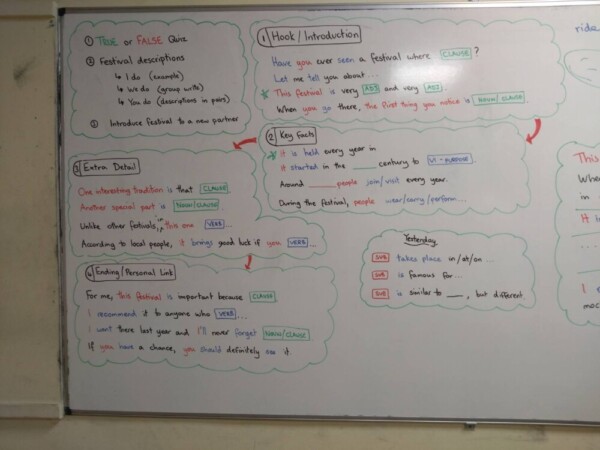 ① TRUE or FALSE Quiz
② Festival descriptions
↳ I do (example)
↳ We do (group write)
↳ You do (descriptions in pairs)
③ Introduce festival to a new partner
1 Hook / Introduction
Have you ever seen a festival where CLAUSE ?
Let me tell you about ...
This festival is very ADJ and very ADJ.
When you go there, the first thing you notice is NOUN / CLAUSE.
2 Key Facts
It is held every year in
it started in the ____ century to V1 - PURPOSE
Around ____ people join/visit every year.
During the festival, people wear/carry/perform...
3 Extra Detail
One interesting tradition is that CLAUSE
Another special part is NOUN/CLAUSE
Unlike other festivals, in this one VERB ...
According to local people, it brings good luck if you VERB ...
4 Ending/Personal Link
For me, this festival is important because CLAUSE.
I recommend it to anyone who VERB ...
I went there last year and I'll never forget NOUN/CLAUSE
If you have a chance, you should definitely see it.
Yesterday
SUB takes place in/at/on ...
SUB is famous for...
SUB is similar to ____, but different
ride
This
Whe
in
It i
I
moc